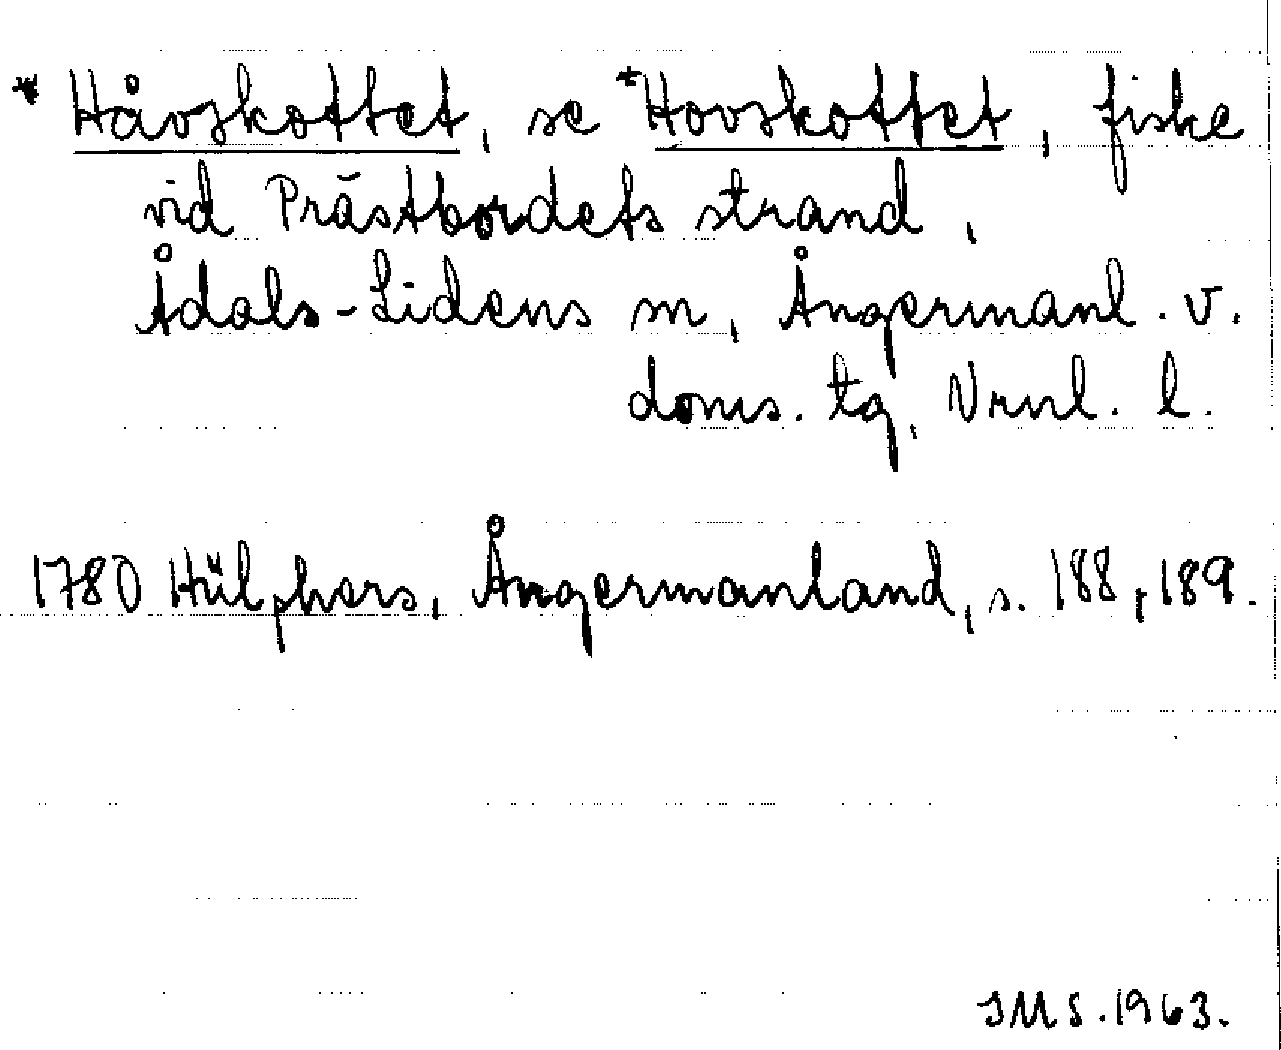 * Håvskottet, se *Hovskottet, fiske
vid Prästbordets strand,
Ådals-Lidens sn, Ångermanl. v.
doms. tg, Vrnl. l.
1780 Hülphers, Ångermanland, s. 188, 189.
IMS. 1963.